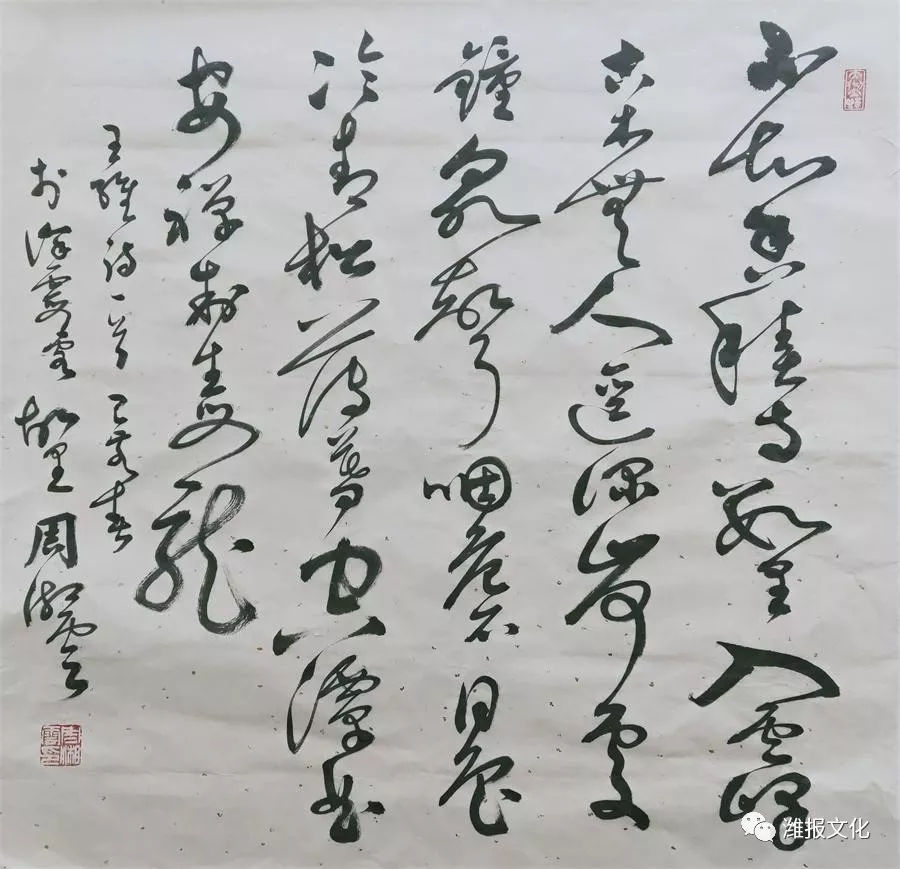 不知香積寺數里入雲峰
古木無人逕深山何處
鐘泉聲咽危石日色
冷青松薄暮空潭曲
安禪制毒龍
王維詩一首 己亥春
於徐霞客故里 周湘雲
潍报文化